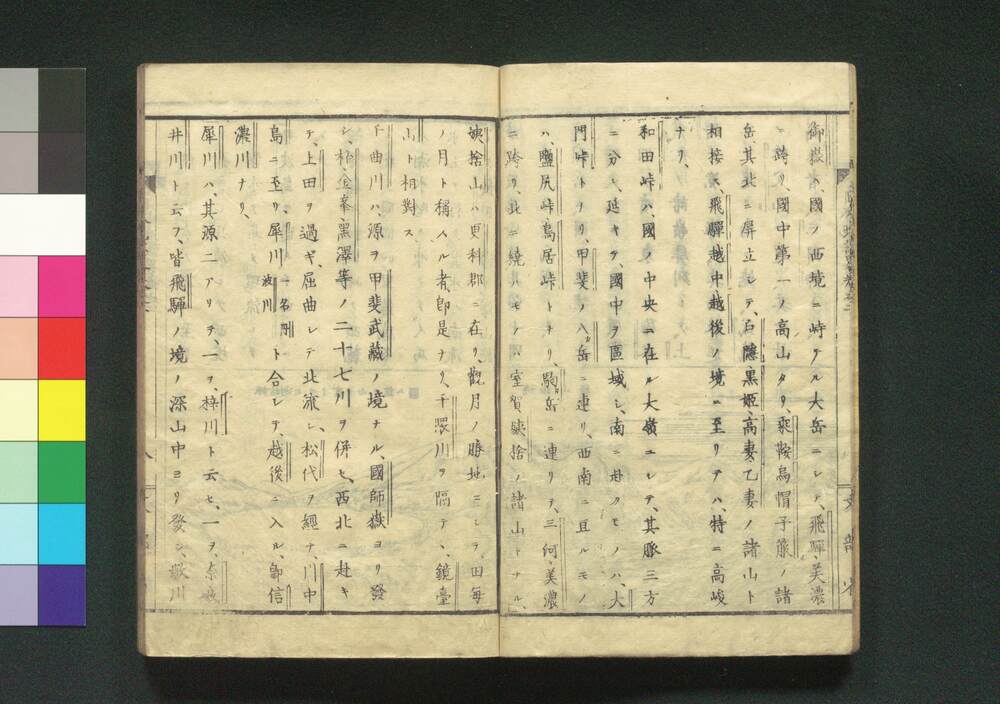 御嶽ハ、國ノ西境ニ峙テル大岳ニシテ、飛驒、美濃
ニ跨リ、國中第一ノ高山タリ、乘鞍、烏帽子嶽ノ諸
岳其北ニ屏立シテ、戸隱、黒姫、高妻、乙妻ノ諸山ト
相接ス、飛驒越中越後ノ境ニ至リテハ、特ニ高峻
ナリ、
和田峠ハ、國ノ中央ニ在ル大嶺ニシテ、其脈三方
ニ分レ、延キテ、國中ヲ區域シ、南ニ赴クモノハ、大
門峠トナリ、甲斐ノ八岳ニ連リ、西南ニ亘ルモノ
ハ、鹽尻峠、鳥居峠トナリ、駒岳ニ連リテ、三河、美濃
ニ跨リ、北ニ繞ルモノハ、室賀姨捨ノ諸山トナル、
姨捨山ハ更科郡ニ在リ、觀月ノ勝地ニシテ、田毎
ノ月ト稱スル者卽是ナリ、千隈川ヲ隔テヽ、鏡臺
山ト相對ス
千曲川ハ、源ヲ甲斐武藏ノ境ナル、國師嶽ヨリ發
シ、梓、金峯、黒澤等ノ二十七川ヲ併セ、西北ニ赴キ
テ、上田ヲ過ギ、屈曲シテ北流シ、松代ヲ經テ、川中
島ニ至リ、犀川一名刑波川ト合シテ、越後ニ入ル、卽信
濃川ナリ、
犀川ハ、其源二アリテ、一ヲ、梓川ト云ヒ、一ヲ、奈良
井川ト云フ、皆飛驒ノ境ノ深山中ヨリ發シ、數川
八
文部省